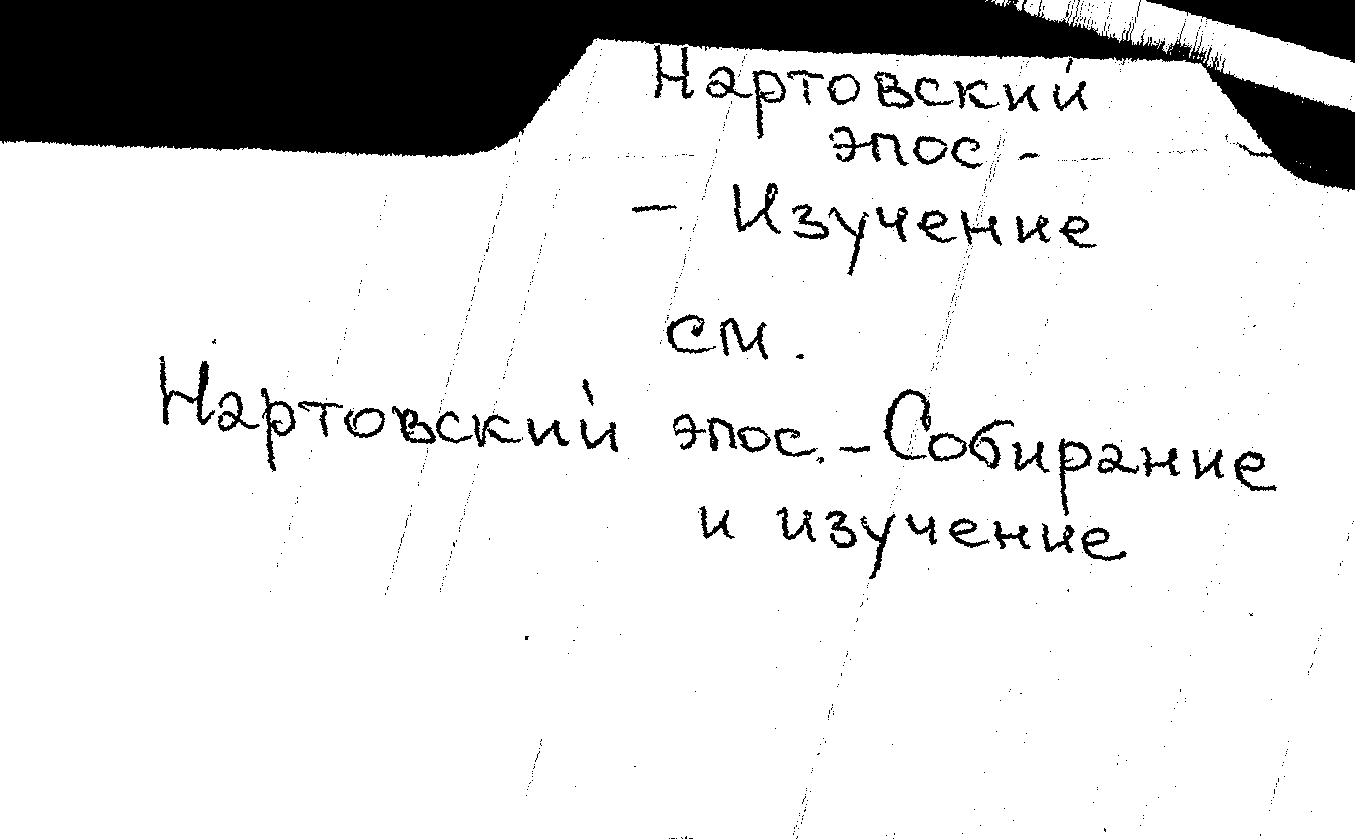 Нартовский
эпос -
- Изучение
см.
Нартовский эпос. - Собирание
и изучение